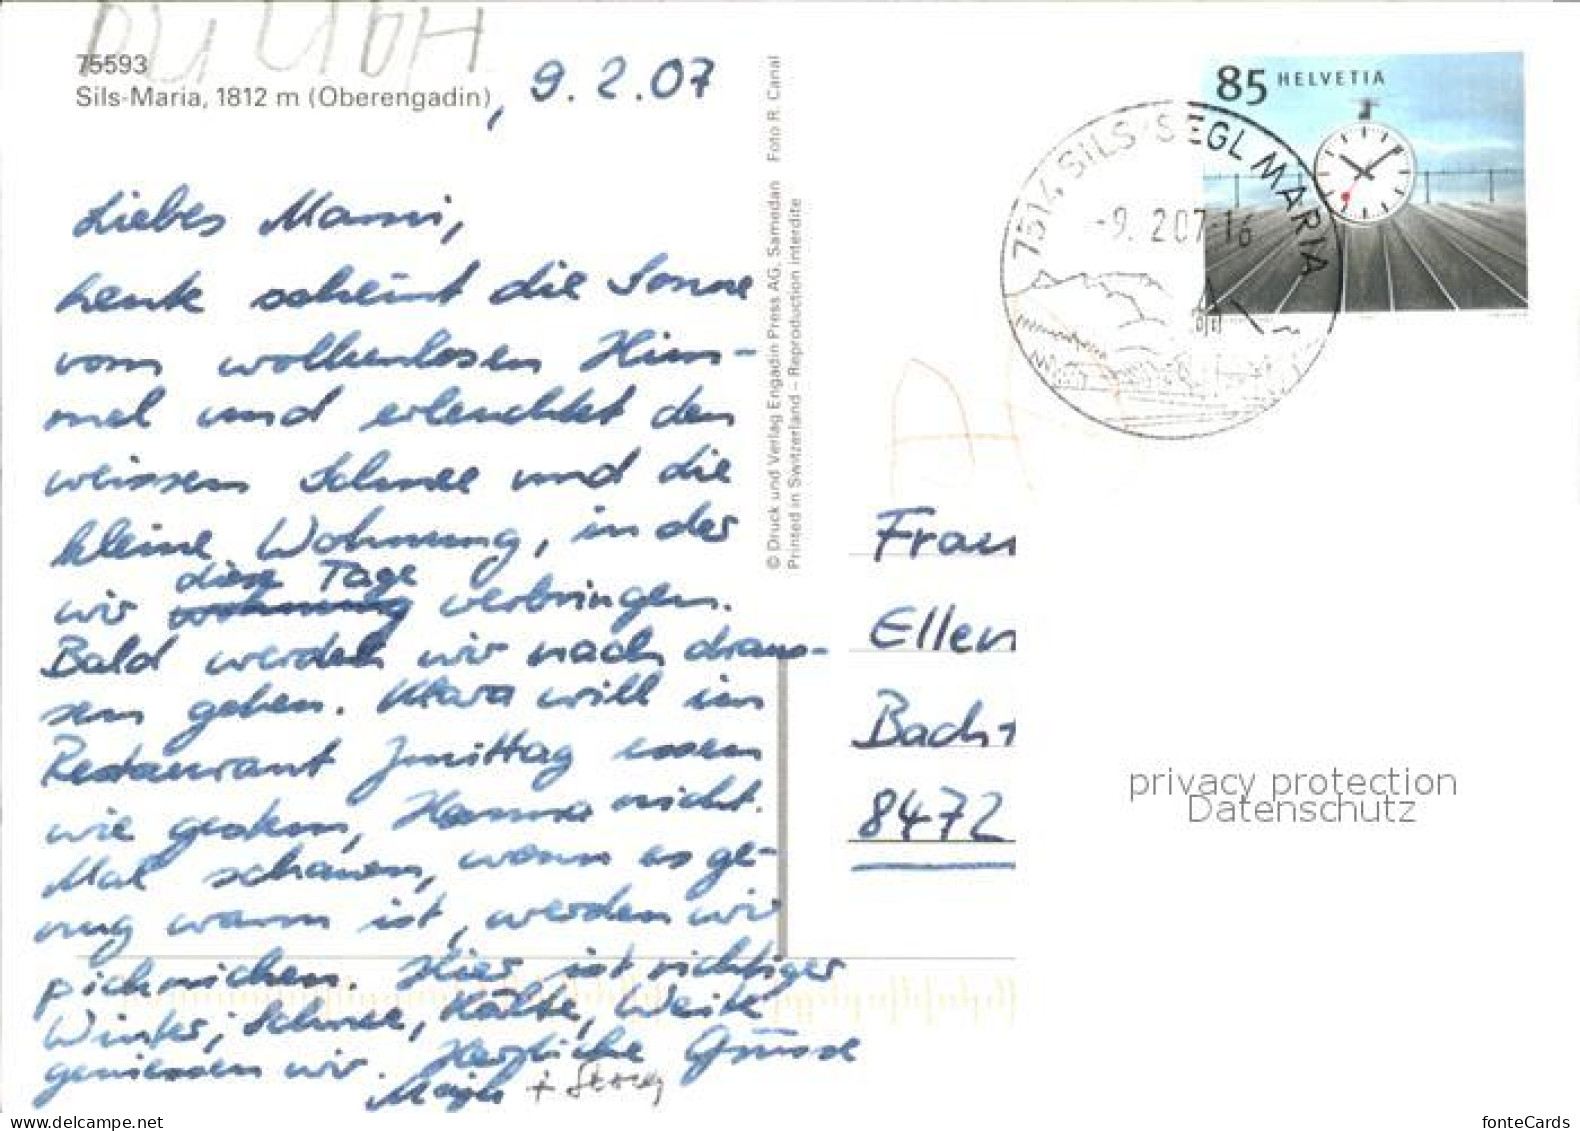 75593
Sils-Maria, 1812 m (Oberengadin)
, 9. 2. 07
Liebes Mami,
heute scheint die Sonne
vom wolkenlosen Him-
mel und erleuchtet den
weissen Schnee und die
kleine Wohnung, in der
diese Tage
wir verbringen.
Bald werden wir nach draus-
sen gehen. Klara will im
Restaurant Zmittag essen
wie gestern, Hanna nicht.
Mal schauen, wenn es ge-
nug warm ist, werden wir
picknicken. Hier ist richtiger
Winter; Schnee, Kälte, Weite
geniessen wir. Herzliche Grüsse
+
© Druck und Verlag Engadin Press AG, Samedan Foto R. Canal
Printed in Switzerland – Reproduction interdite
85 HELVETIA
7514 SILS/SEGL MARIA
-9. 2.07-16
Frau
Ellen
Bach
8472
privacy protection
Datenschutz
www.delcampe.net
fonteCards